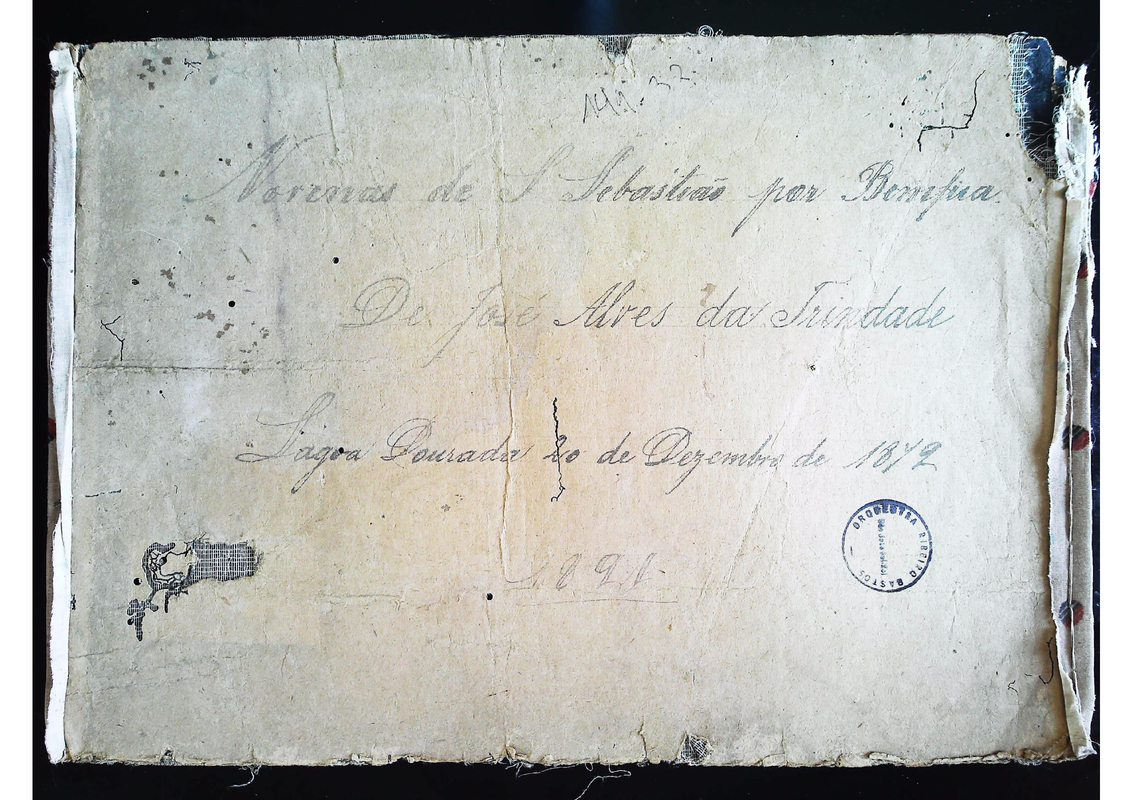 149. 32.
Novenas de S Sebastião por Bonifcia.
De José Alves da Trindade
Lagoa Dourada 20 de Dezembro de 1872
ORQUESTRA RIBEIRO BASTOS